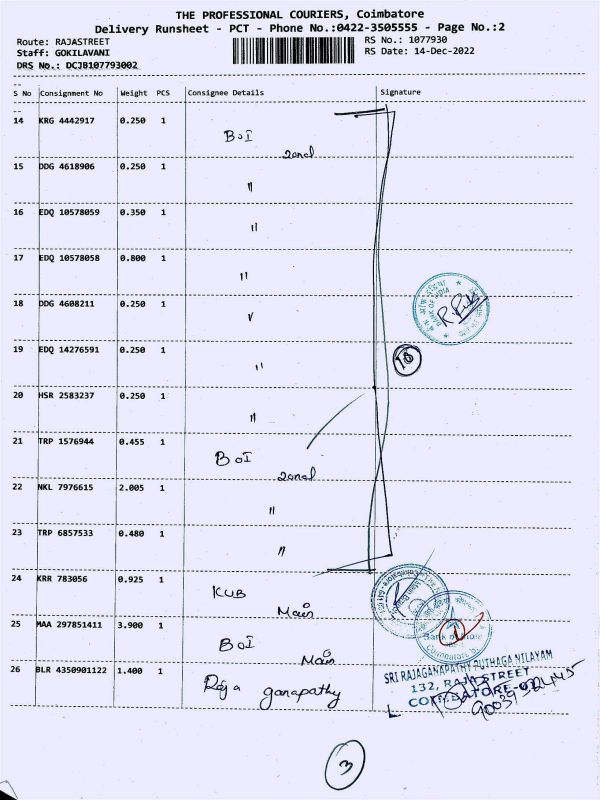 THE PROFESSIONAL COURIERS, Coimbatore
Delivery Runsheet - PCT - Phone No.:0422-3505555 - Page No.:2
Route: RAJASTREET
Staff: GOKILAVANI
DRS No.: DCJB107793002
RS No.: 1077930
RS Date: 14-Dec-2022
S No Consignment No Weight PCS Consignee Details Signature
14 KRG 4442917 0.250 1 BOI
zonal
15 DDG 4618906 0.250 1 "
16 EDQ 10578059 0.350 1 "
17 EDQ 10578058 0.800 1 "
18 DDG 4608211 0.250 1 "
19 EDQ 14276591 0.250 1 "
10
20 HSR 2583237 0.250 1 "
21 TRP 1576944 0.455 1 BOI
zonal
22 NKL 7976615 2.005 1 "
23 TRP 6857533 0.480 1 "
24 KRR 783056 0.925 1 KUB
Main
25 MAA 297851411 3.900 1 BOI
Main
Bank of India
Coimbatore
1
26 BLR 4350901122 1.400 1 Raja ganapathy
SRI RAJAGANAPATHY PUTHAGA NILAYAM
132, RAJA STREET
COIMBATORE
3